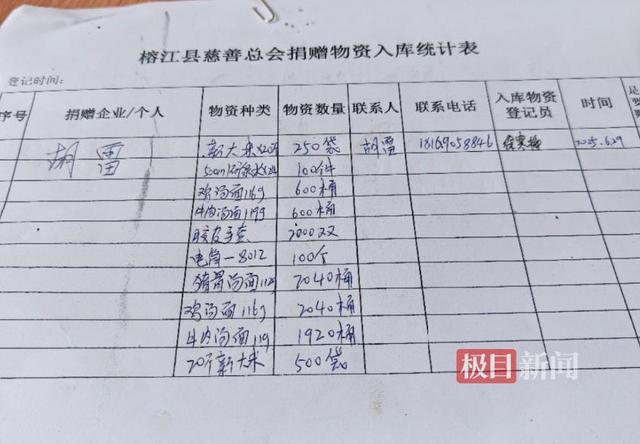 榕江县慈善总会捐赠物资入库统计表
登记时间：
序号 捐赠企业/个人 物资种类 物资数量 联系人 联系电话 入库物资登记员 时间
胡雷 新大米 250袋 胡雷 2025.6.29
100件
鸡汤面116g 600桶
牛肉汤面119g 600桶
胶皮手套 2000双
电筒-8012 100个
猪骨汤面 2040桶
鸡汤面116g 2040桶
牛肉汤面119 1920桶
20斤新大米 500袋
极目新闻